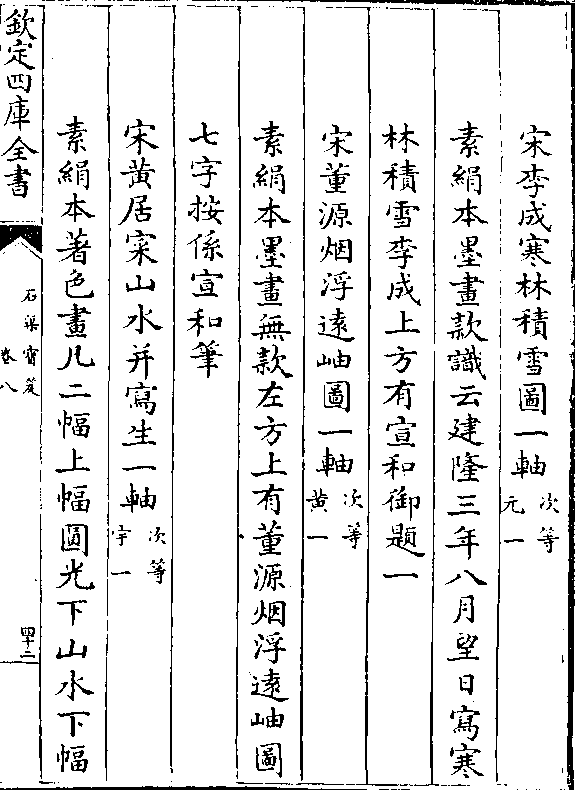 宋李成寒林積雪圖一軸次等元一
素絹本墨畫款識云建隆三年八月望日寫寒
林積雪李成上方有宣和御題一
宋董源烟浮遠岫圖一軸次等黄一
素絹本墨畫無款左方上有董源烟浮遠岫圖
七字按係宣和筆
宋黄居寀山水并寫生一軸次等宇一
素絹本著色畫凡二幅上幅圓光下山水下幅
欽定四庫全書
石渠寶笈
卷八
四十二